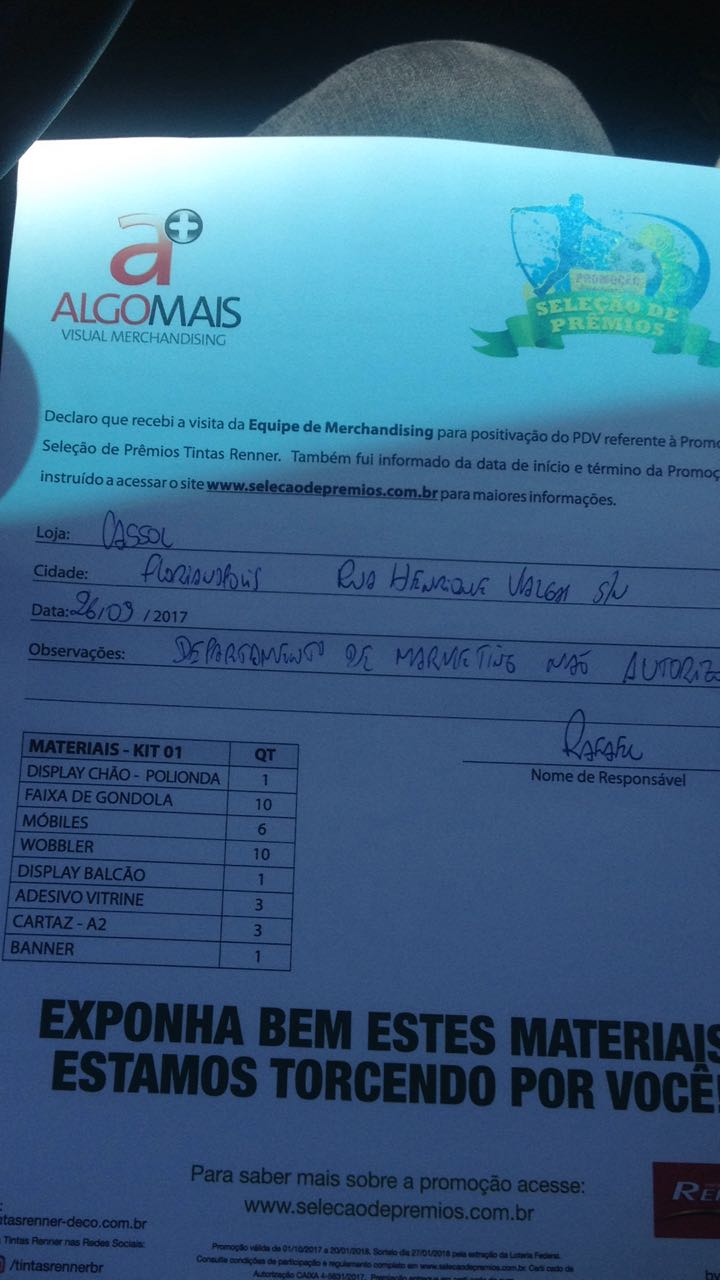 a+
ALGOMAIS
VISUAL MERCHANDISING
PROMOÇÃO
SELEÇÃO DE
PRÊMIOS
Declaro que recebi a visita da Equipe de Merchandising para positivação do PDV referente à Promo
Seleção de Prêmios Tintas Renner. Também fui informado da data de início e término da Promoç
instruído a acessar o site www.selecaodepremios.com.br para maiores informações.
Loja: CASSOL
Cidade: FLORIANOPOLIS RUA HENRIQUE VALGA S/N
Data: 26/09 / 2017
Observações: DEPARTAMENTO DE MARKETING NAO AUTORIZO
RAFAEL
Nome de Responsável
MATERIAIS - KIT 01 QT
DISPLAY CHÃO - POLIONDA 1
FAIXA DE GONDOLA 10
MÓBILES 6
WOBBLER 10
DISPLAY BALCÃO 1
ADESIVO VITRINE 3
CARTAZ - A2 3
BANNER 1
EXPONHA BEM ESTES MATERIAIS
ESTAMOS TORCENDO POR VOCÊ!
Para saber mais sobre a promoção acesse:
www.selecaodepremios.com.br
RE
ntasrenner-deco.com.br
Tintas Renner nas Redes Sociais:
/tintasrennerbr
Promoção válida de 01/10/2017 a 20/01/2018. Sorteio dia 27/01/2018 pela extração da Loteria Federal.
Consulte condições de participação e regulamento completo em www.selecaodepremios.com.br. Certi cado de
Autorização CAIXA 4-5631/2017.